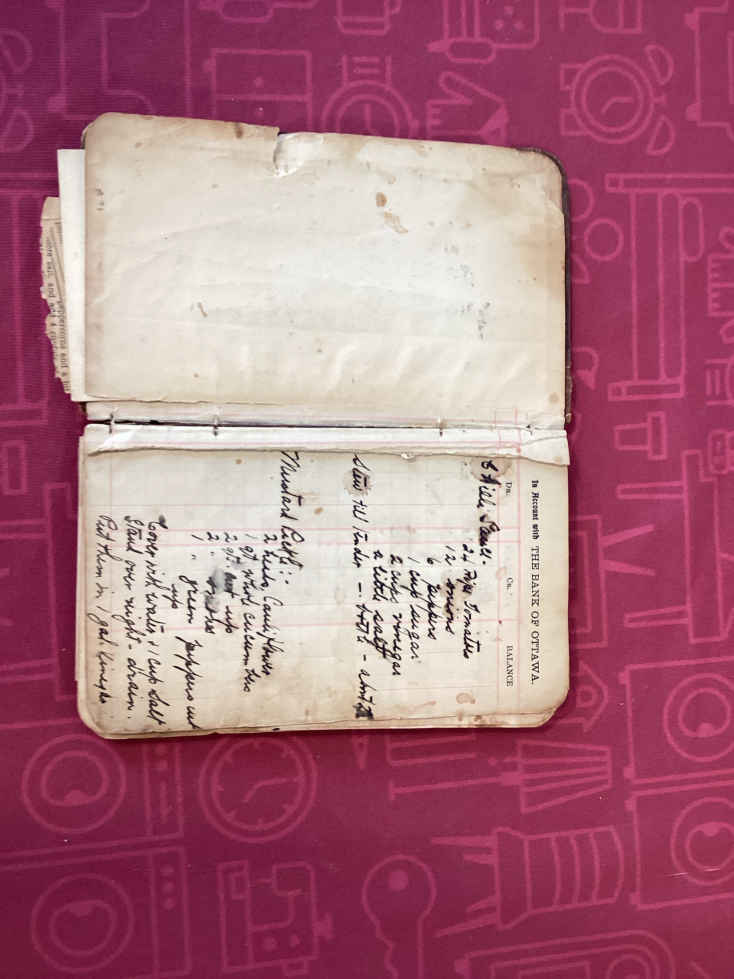 In Account with THE BANK OF OTTAWA.
DR. CR. BALANCE
Chille Sauce.
24 ripe Tomatoes
12 onions
6 peppers
1 cup sugar
2 cups vinegar
a little salt
Stew till tender — - about
Mustard Pickle:-
2 heads Cauliflower
1 qt whole cucumbers
2 qts cut up
2 " onions
1 " green peppers cut
up
Cover with water & 1 cup salt
Stand over night - drain.
Put them in 1 gal. Vinegar